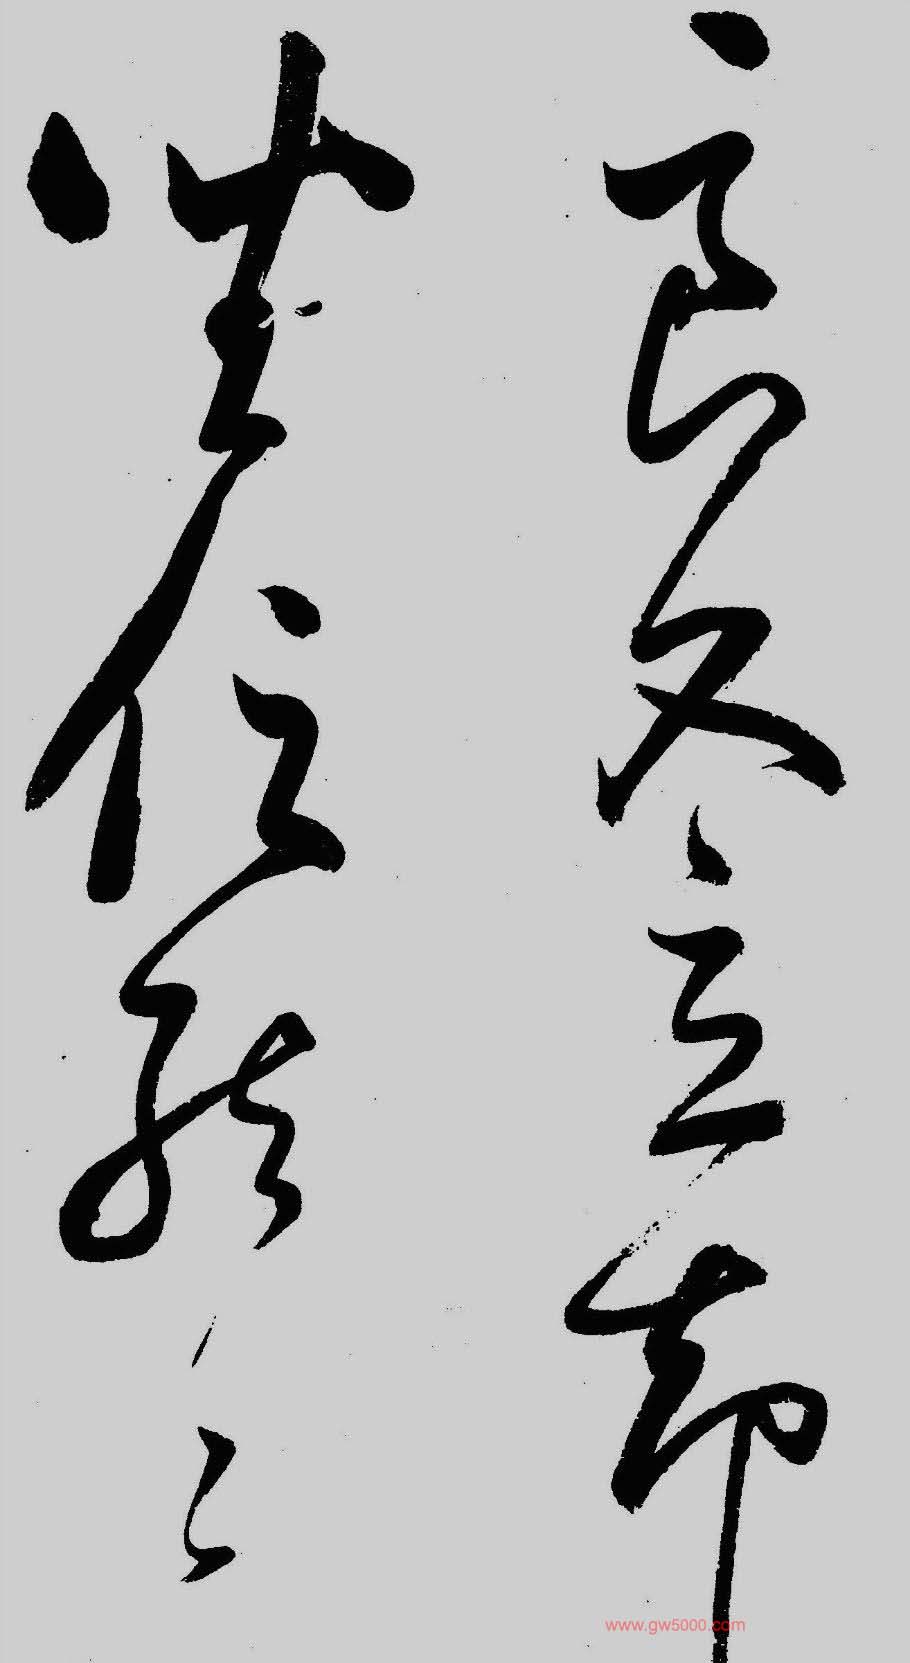 良久立却
坐促弦々
www.gw5000.com